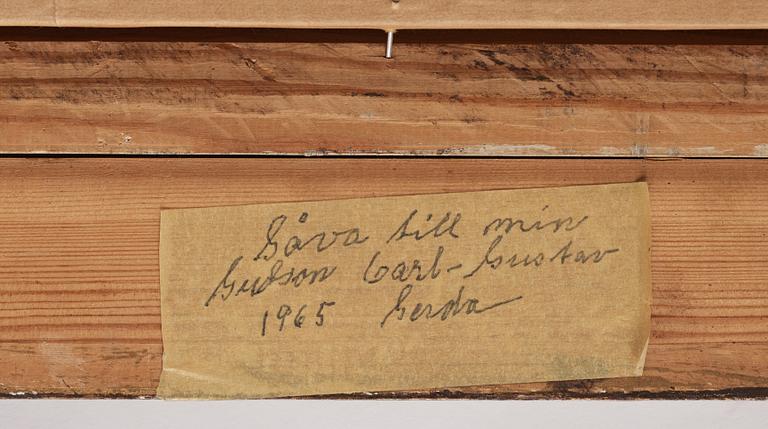 Gåva till min
Gudson Carl-Gustav
1965 Gerda